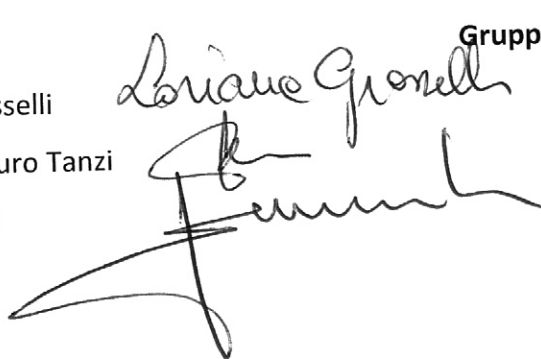 Grupp
sselli
Loriana Grosselli
uro Tanzi